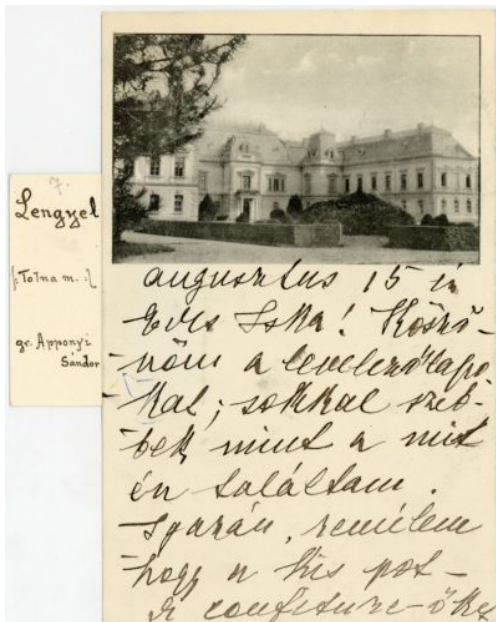 7.
Lengyel
/: Tolna m. :/
gr. Apponyi
Sándor
augusztus 15 én
Edes Iska! Köszö-
-nöm a levelezőlapo-
-kat; sokkal szeb-
-bek mint a mit
én találtam.
Igazán, remélem
hogy a kis pot-
confiture-őke